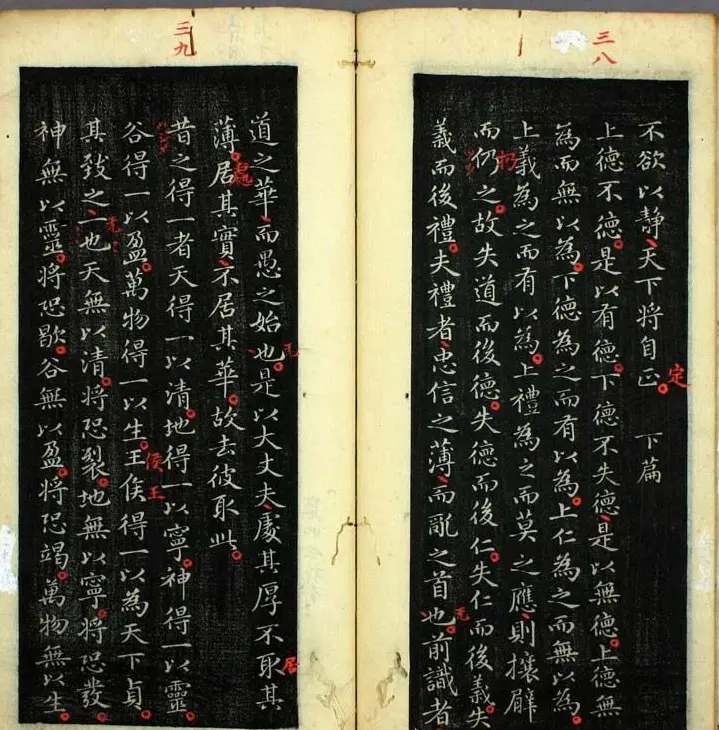 三八
不欲以静天下将自正
定
下篇
上德不德。是以有德。下德不失德、是以無德。上德無
為而無以為。下德為之而有以為。上仁為之而無以為。
上義為之而有以為。上禮為之而莫之應、則攘臂
而仍之。故失道而後德。失德而後仁。失仁而後義。失
扔
義而後禮。夫禮者、忠信之薄、而亂之首也。前識者
无
三九
道之華、而愚之始也。是以大丈夫、處其厚不取其
无
居
薄。居其實、不居其華。故去彼取此。
處
昔之得一者天得一以清。地得一以寧。神得一以靈。
谷得一以盈。萬物得一以生。王侯得一以為天下貞。
侯王
其致之、一也天無以清。將恐裂。地無以寧。將恐發。
无
神無以靈。將恐歇。谷無以盈。將恐竭。萬物無以生。